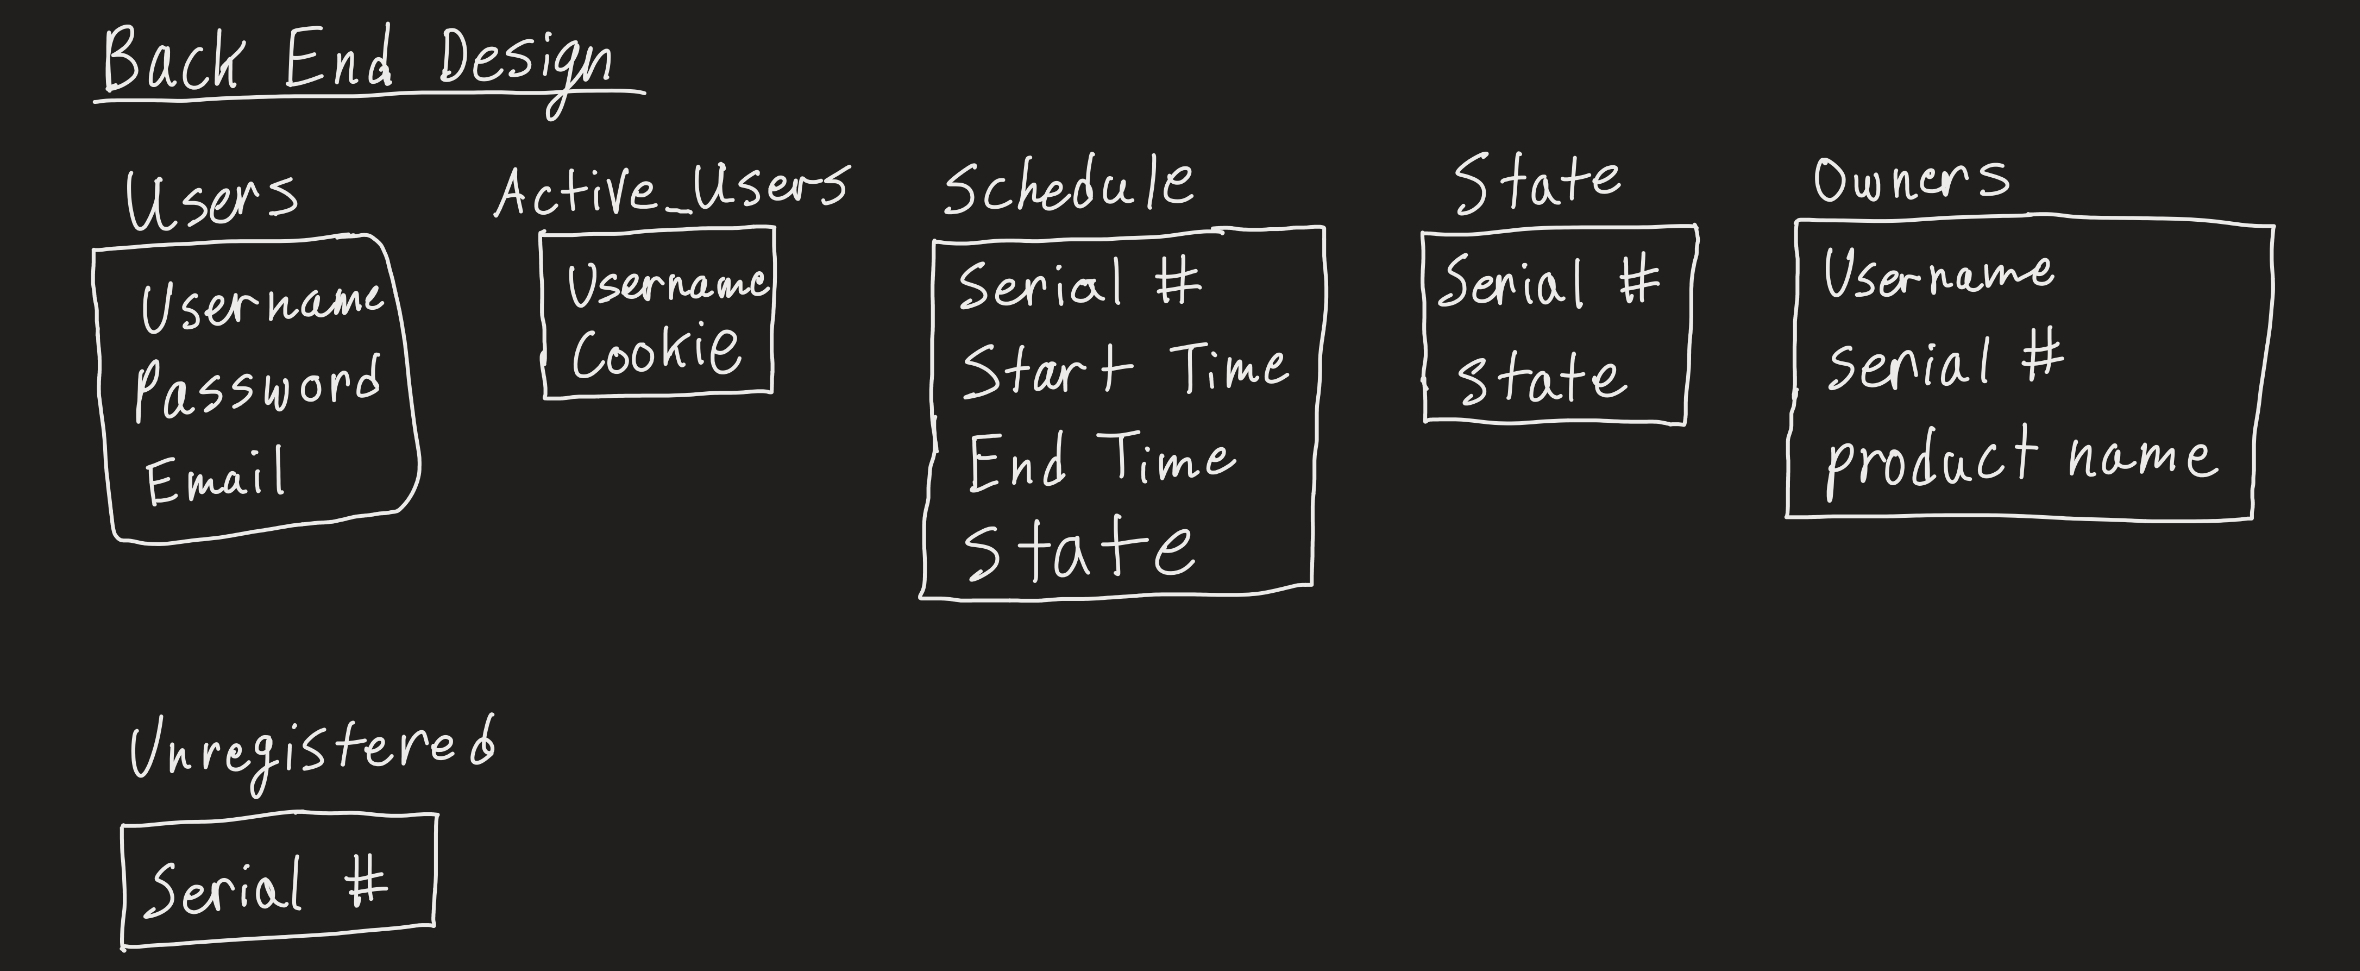 Back End Design
Users
Username
Password
Email
Active_Users
Username
Cookie
Schedule
Serial #
Start Time
End Time
State
State
Serial #
State
Owners
Username
serial #
product name
Unregistered
Serial #